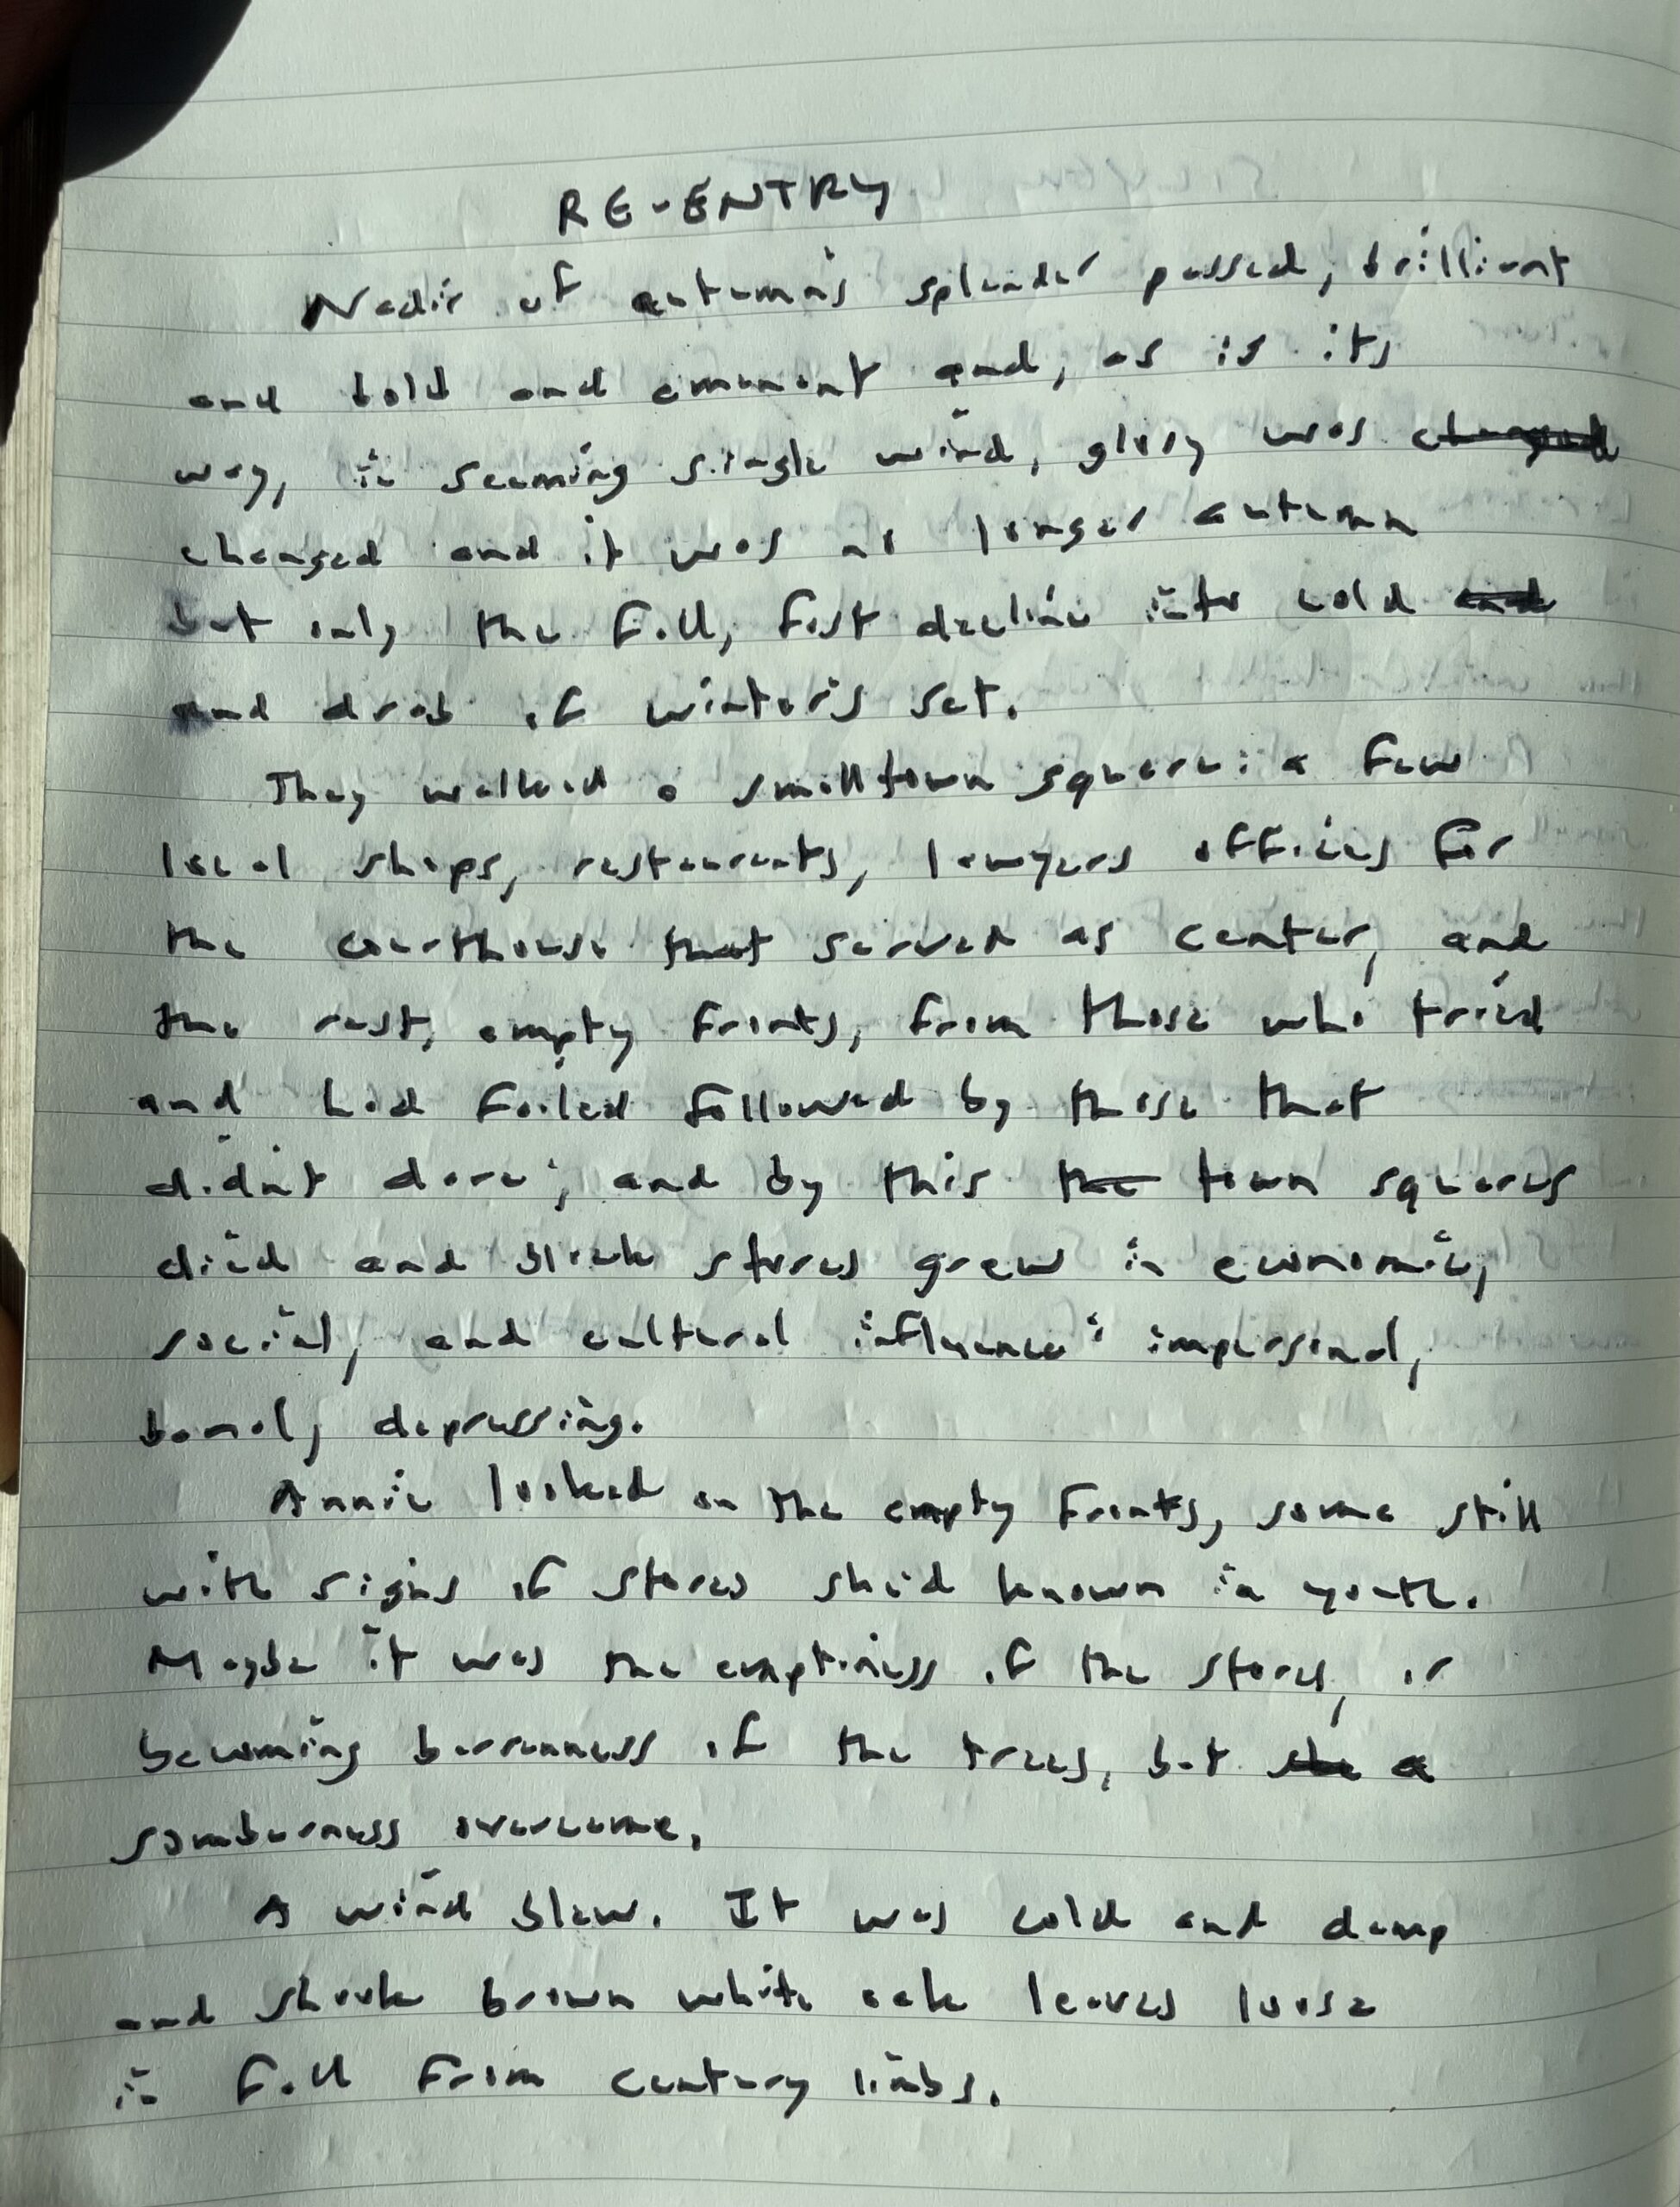 RE-ENTRY
Nadir of autumn's splendor passed, brilliant
and bold and eminent and, as is its
way, in seeming single wind, glory was changed
changed and it was no longer autumn
but only the fall, first decline into cold and
and drab of winter's set.
They walked a small town square: a few
local shops, restaurants, lawyers offices for
the courthouse that served as center, and
the rest, empty fronts, from those who tried
and had failed followed by those that
didn't dare; and by this the town squares
died and block stores grew in economic,
social, and cultural influence: impersonal,
banal, depressing.
Annie looked on the empty fronts, some still
with signs of stores she'd known in youth.
Maybe it was the emptiness of the stores, or
becoming barrenness of the trees, but she a
somberness overcame.
A wind blew. It was cold and damp
and shook brown white oak leaves loose
in fall from century limbs.